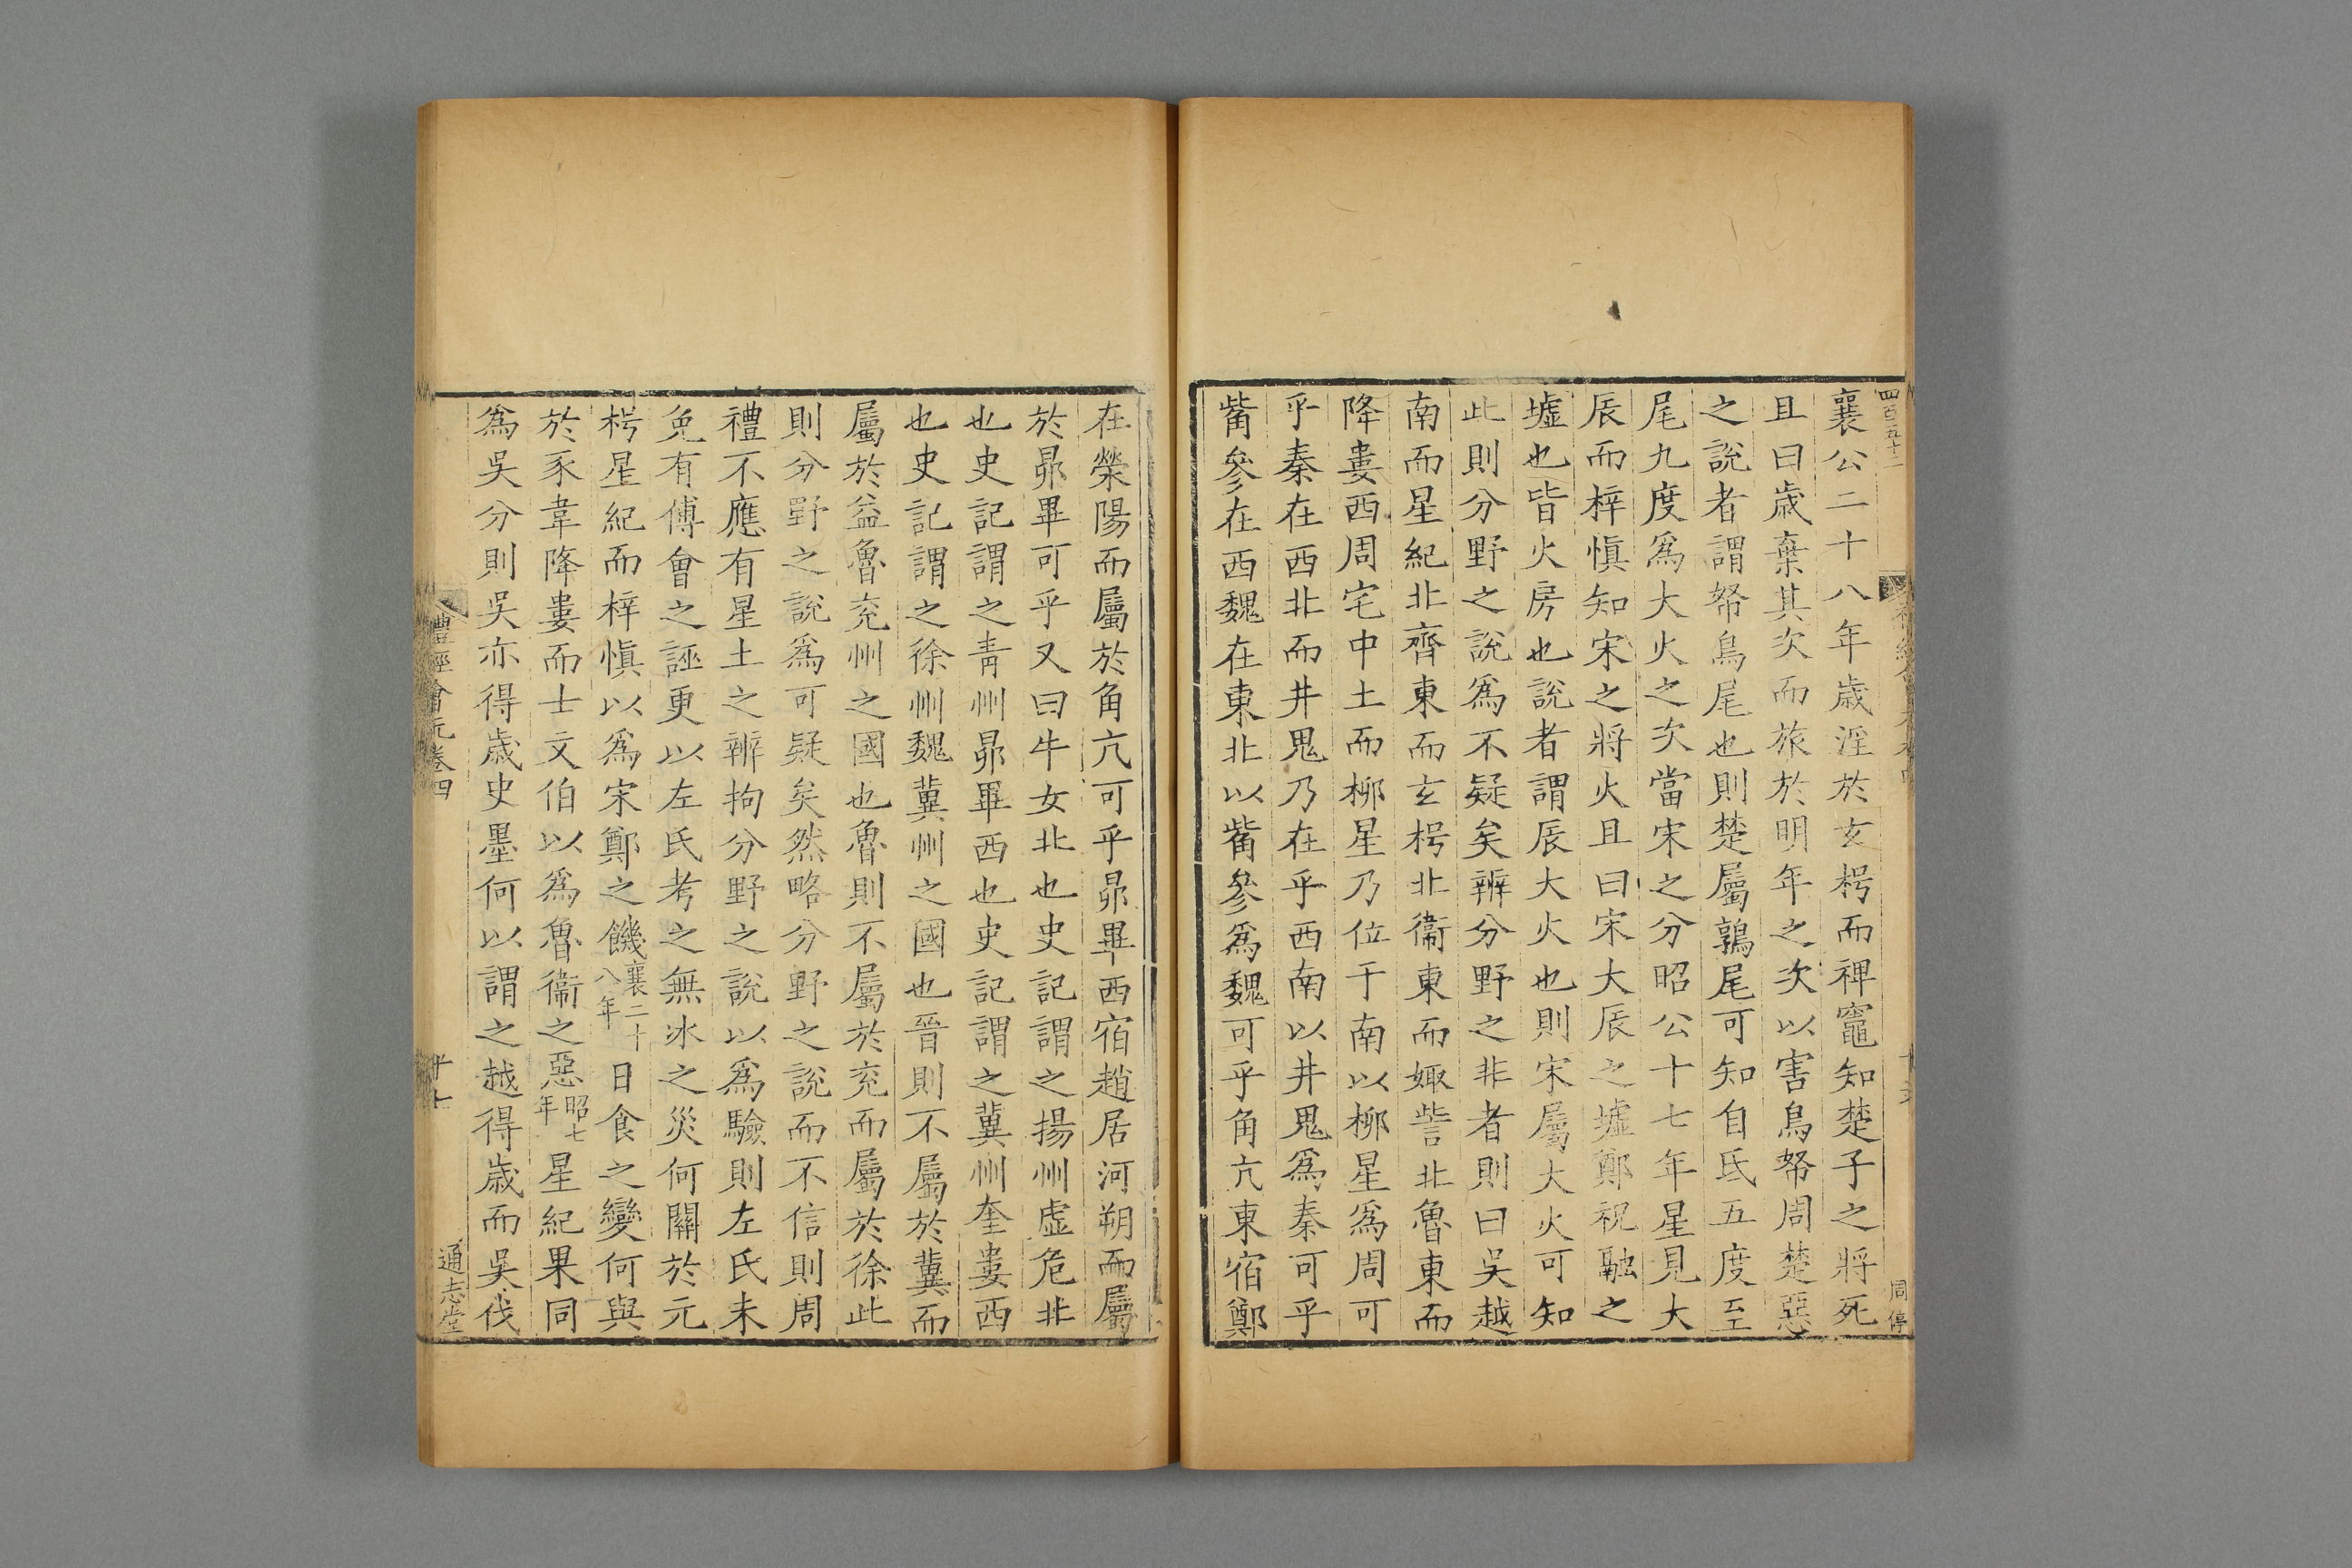 四百五十二
襄公二十八年歳淫於玄枵而禆竈知楚子之將死
且曰歳棄其次而旅於明年之次以害鳥帑周楚惡
之說者謂帑鳥尾也則楚屬鶉尾可知自氐五度至
尾九度爲大火之次當宋之分昭公十七年星見大
辰而梓愼知宋之將火且曰宋大辰之墟鄭祝融之
墟也皆火房也說者謂辰大火也則宋屬大火可知
此則分野之說爲不疑矣辨分野之非者則曰吳越
南而星紀北齊東而玄枵北衞東而娵訾北魯東而
降婁西周宅中土而柳星乃位于南以柳星爲周可
乎秦在西北而井鬼乃在乎西南以井鬼爲秦可乎
觜參在西魏在東北以觜參爲魏可乎角亢東宿鄭
周停
在滎陽而屬於角亢可乎昴畢西宿趙居河朔而屬
於昴畢可乎又曰牛女北也史記謂之揚州虛危北
也史記謂之青州昴畢西也史記謂之冀州奎婁西
也史記謂之徐州魏冀州之國也晉則不屬於冀而
屬於益魯兖州之國也魯則不屬於兖而屬於徐此
則分野之說爲可疑矣然略分野之說而不信則周
禮不應有星土之辨拘分野之說以爲驗則左氏未
免有傅會之誣更以左氏考之無冰之災何關於元
枵星紀而梓愼以爲宋鄭之饑襄二十八年日食之變何與
於豕韋降婁而士文伯以爲魯衞之惡昭七年星紀果同
爲吳分則吳亦得歳史墨何以謂之越得歳而吳伐
禮經會元卷四
通志堂